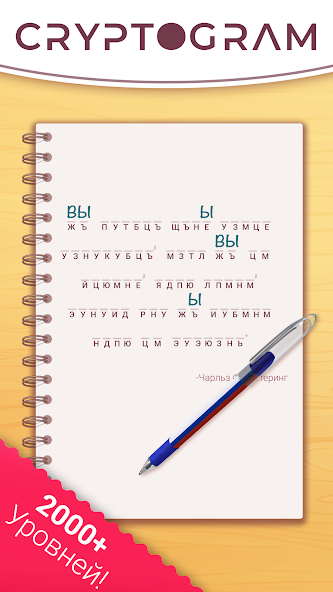 CRYPTOGRAM
ВЫ Ы
ЖЪ ПУТБЦЪ ЩЪНЕ УЗМЦЕ
ВЫ
УЗНУКУБЦЪ, МЗТЛ ЖЪ ЦМ
ЙЦЮМНЕ, ЯДПЮ ЛПМНМ,
Ы
ЭУНУИД РНУ ЖЪ ИУБМНМ
НДПЮ ЦМ ЭУЭЮЗНЬ
-Чарльз
теринг
2000+
уровней!